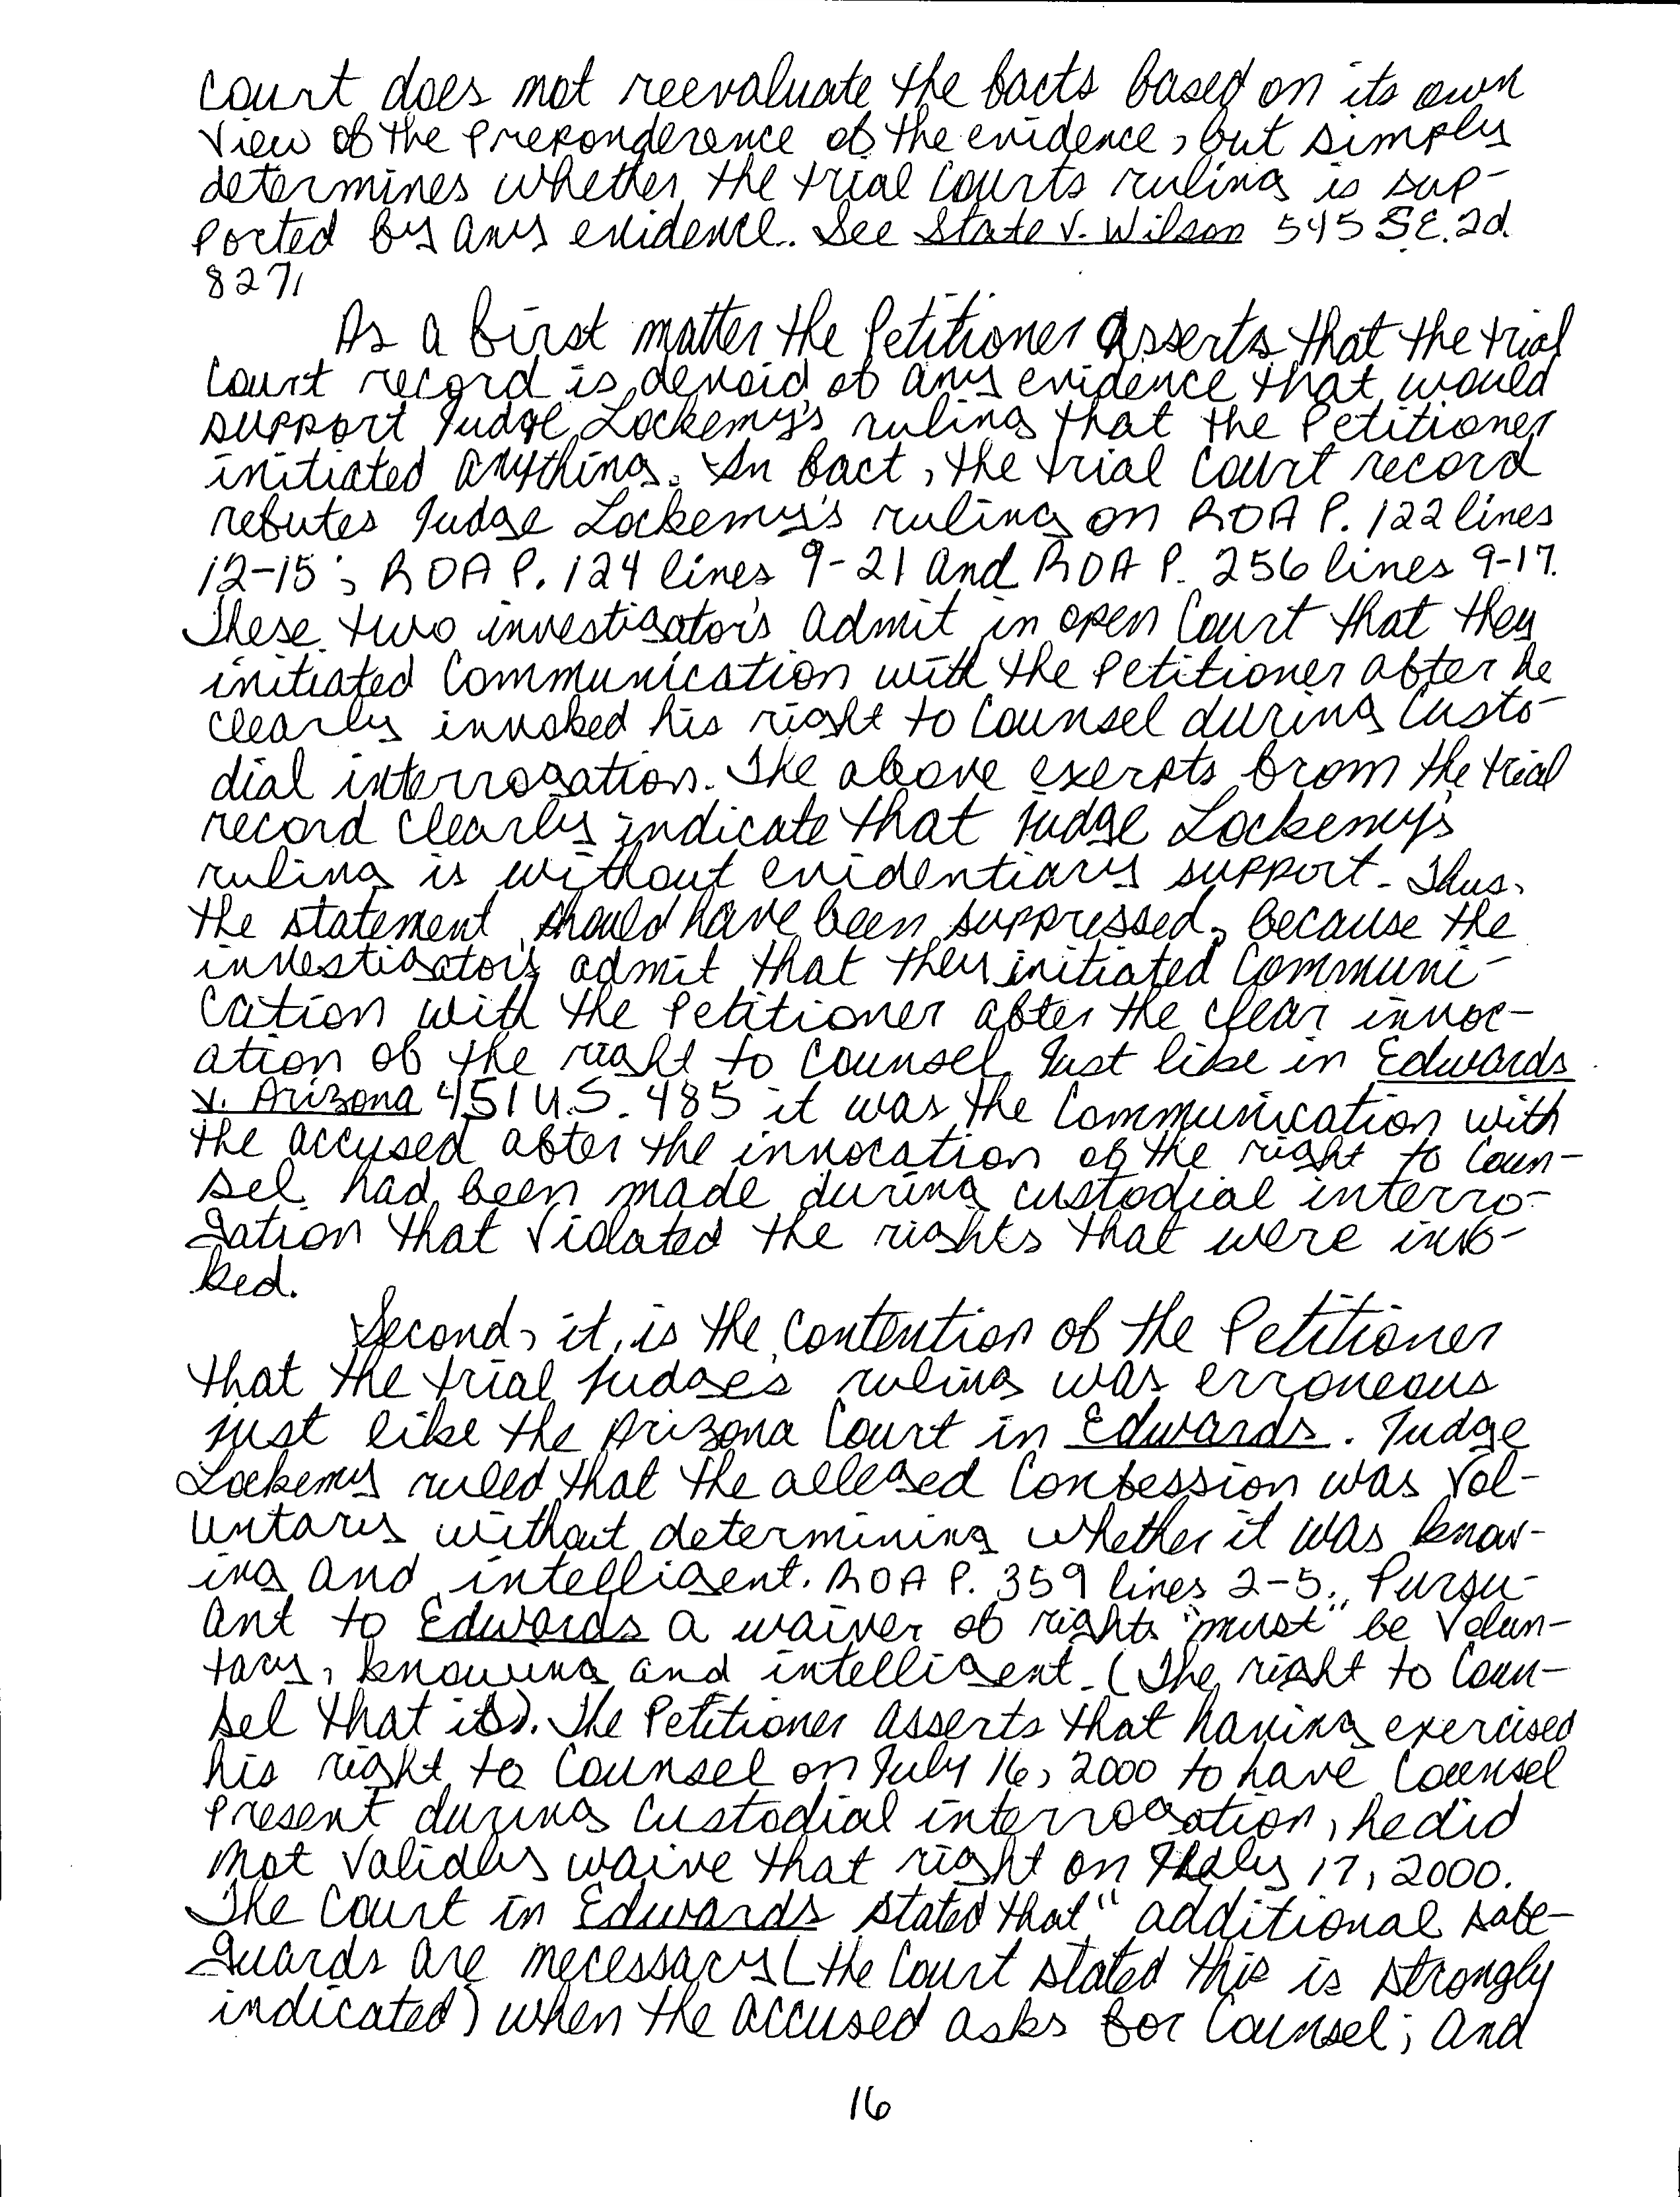 court does not reevaluate the facts based on its own
view of the preponderence of the evidence, but simply
determines whether the trial courts ruling is sup-
ported by any evidence. See State v. Wilson 545 S.E.2d
827,
As a first matter the Petitioner asserts that the trial
court record is devoid of any evidence that would
support Judge Lockemy's ruling that the Petitioner
initiated anything. In fact, the trial court record
rebutes Judge Lockemy's ruling on ROA P. 122 lines
12-15; ROA P. 124 lines 9-21 and ROA P. 256 lines 9-17.
These two investigator's admit in open Court that they
initiated communication with the Petitioner after he
clearly invoked his right to counsel during custo-
dial interrogation. The above exerpts from the trial
record clearly indicate that Judge Lockemy's
ruling is without evidentiary support. Thus,
the statement should have been suppressed, because the
investigator's admit that they initiated communi-
cation with the Petitioner after the clear invoc-
ation of the right to counsel. Just like in Edwards
v. Arizona 451 U.S. 485 it was the communication with
the accused after the invocation of the right to coun-
sel had been made during custodial interro-
gation that violated the rights that were invo-
ked.
Second, it is the contention of the Petitioner
that the trial judge's ruling was erroneous
just like the Arizona Court in Edwards. Judge
Lockemy ruled that the alleged confession was vol-
untary without determining whether it was know-
ing and intelligent. ROA P. 359 lines 2-5. Pursu-
ant to Edwards a waiver of rights "must" be volun-
tary, knowing and intelligent. (The right to coun-
sel that is). The Petitioner asserts that having exercised
his right to counsel on July 16, 2000 to have counsel
present during custodial interrogation, he did
not validly waive that right on July 17, 2000.
The Court in Edwards stated that "additional safe-
guards are necessary (the Court stated this is strongly
indicated) when the accused asks for counsel; and
16